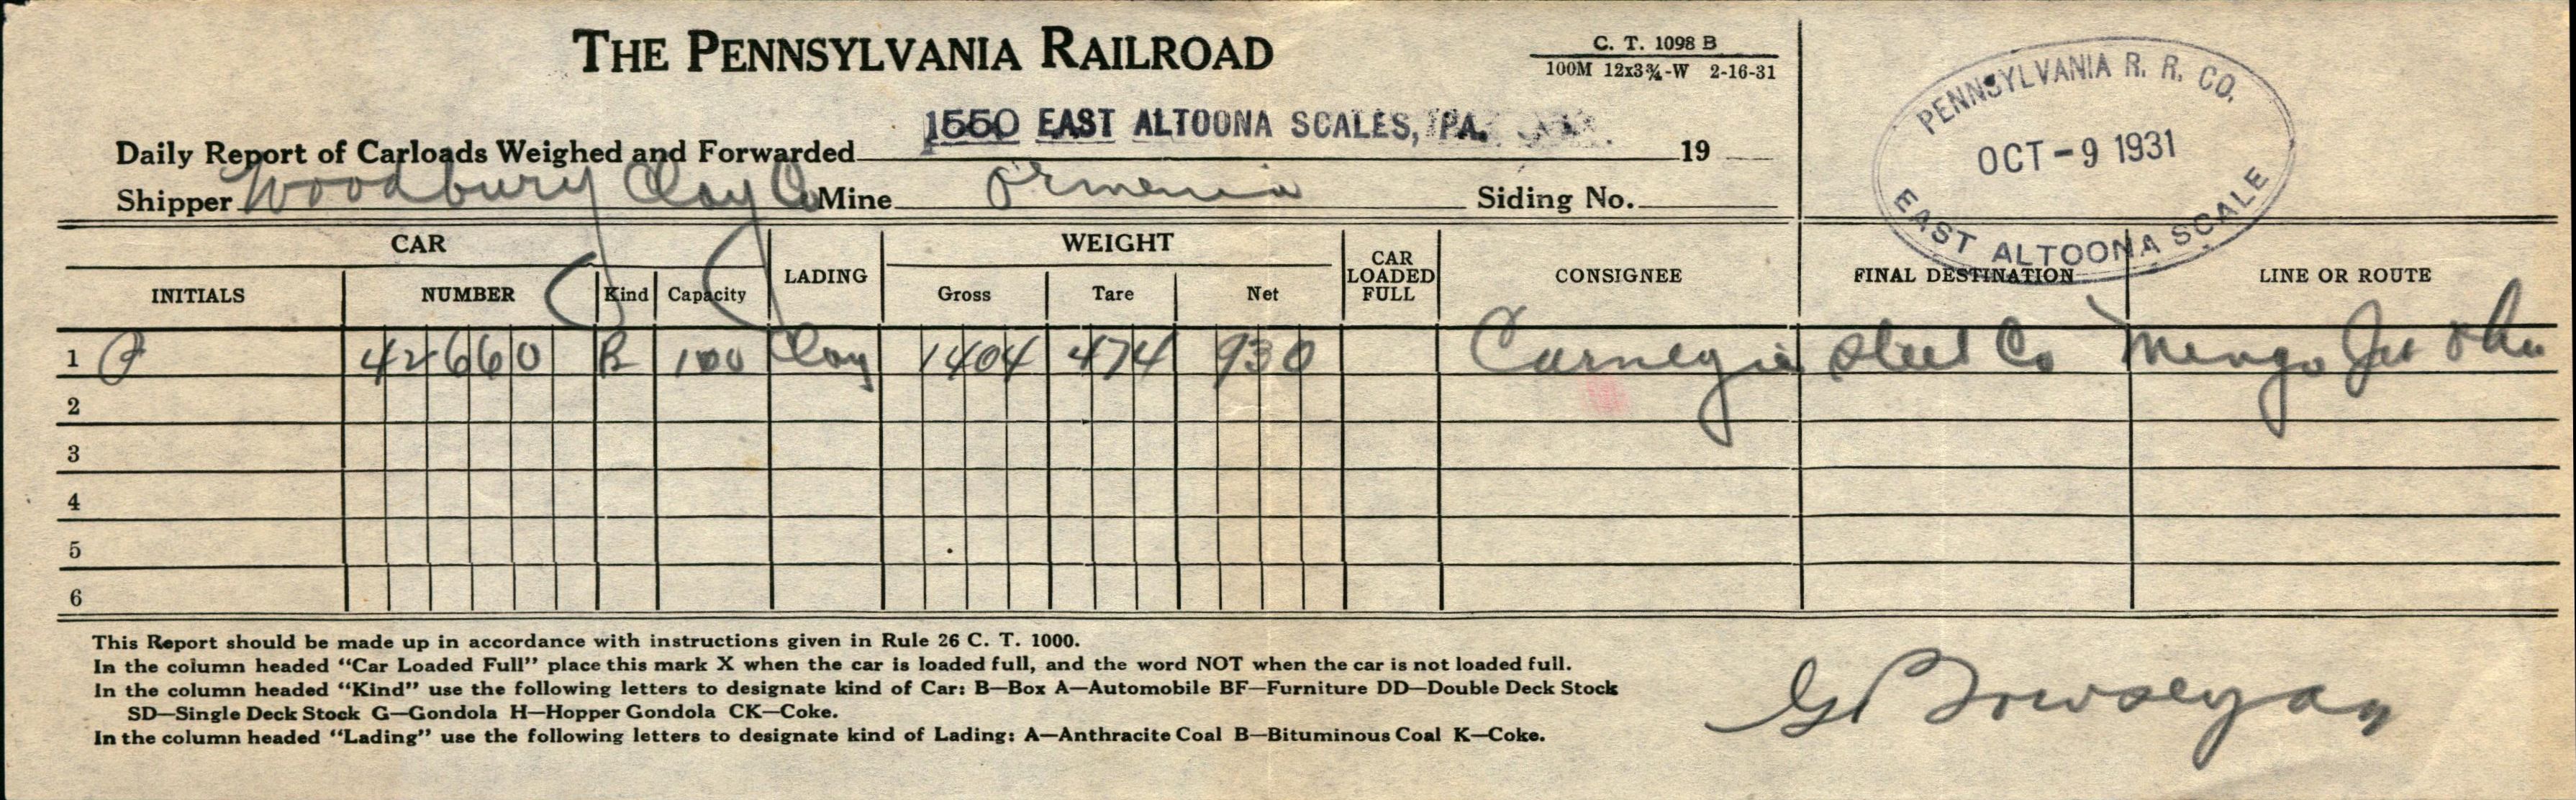 THE PENNSYLVANIA RAILROAD
C. T. 1098 B
100M 12x3¾-W 2-16-31
PENNSYLVANIA R. R. CO.
OCT-9 1931
EAST ALTOONA SCALE
1550 EAST ALTOONA SCALES, PA.
Daily Report of Carloads Weighed and Forwarded 19
Shipper Woodbury Clay Co Mine Ormenia Siding No.
CAR WEIGHT
INITIALS NUMBER Kind Capacity LADING Gross Tare Net CAR LOADED FULL CONSIGNEE FINAL DESTINATION LINE OR ROUTE
1 P 42660 B 100 Clay 1404 474 930 Carnegie Steel Co Mingo Jct Ohio
2
3
4
5
6
This Report should be made up in accordance with instructions given in Rule 26 C. T. 1000.
In the column headed “Car Loaded Full” place this mark X when the car is loaded full, and the word NOT when the car is not loaded full.
In the column headed “Kind” use the following letters to designate kind of Car: B—Box A—Automobile BF—Furniture DD—Double Deck Stock
SD—Single Deck Stock G—Gondola H—Hopper Gondola CK—Coke.
In the column headed “Lading” use the following letters to designate kind of Lading: A—Anthracite Coal B—Bituminous Coal K—Coke.